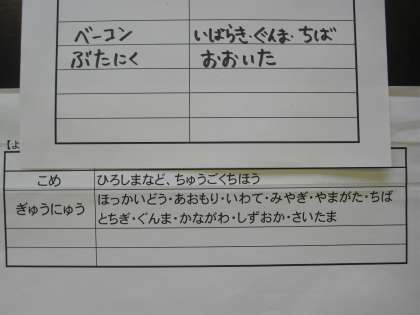 ベーコン いばらき・ぐんま・ちば
ぶたにく おおいた
【よ
こめ ひろしまなど、ちゅうごくちほう
ぎゅうにゅう ほっかいどう・あおもり・いわて・みやぎ・やまがた・ちば
とちぎ・ぐんま・かながわ・しずおか・さいたま